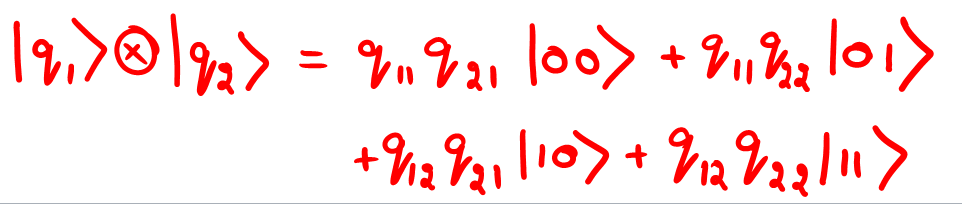 |q₁⟩⊗|q₂⟩ = q₁₁q₂₁|00⟩ + q₁₁q₂₂|01⟩
+q₁₂q₂₁|10⟩ + q₁₂q₂₂|11⟩